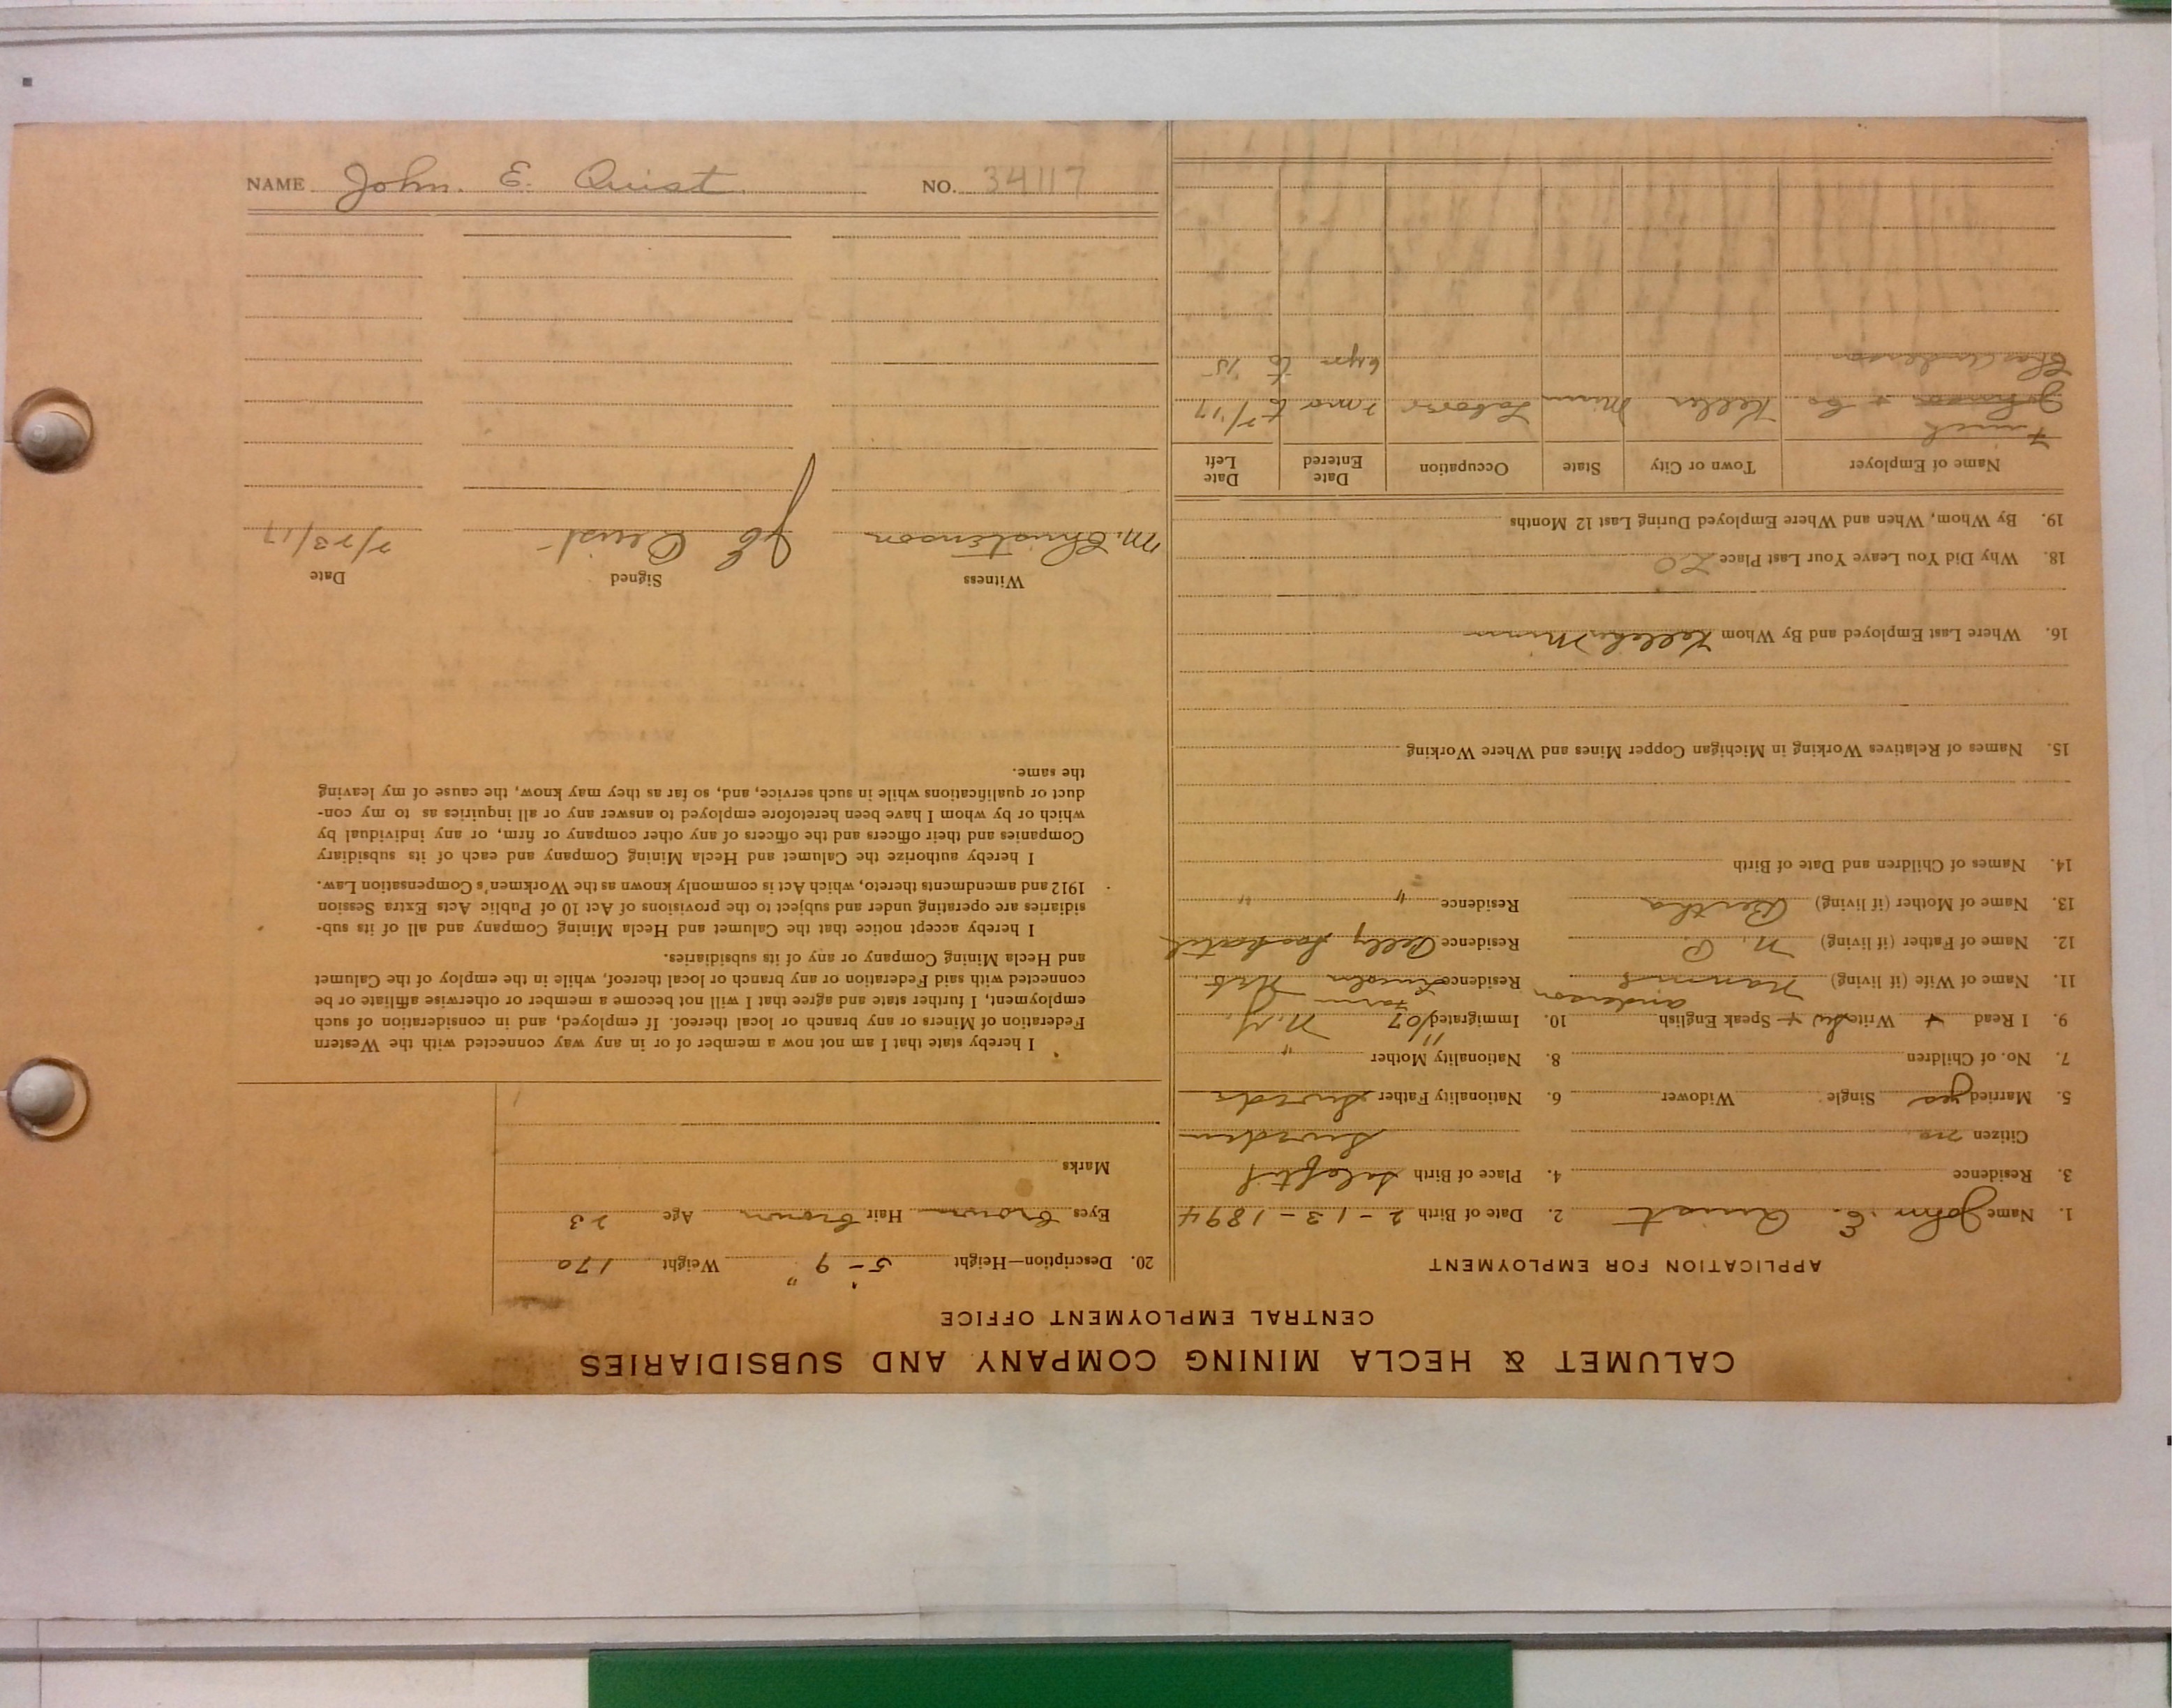 NAME John. E. Quist NO. 34117
CALUMET & HECLA MINING COMPANY AND SUBSIDIARIES
CENTRAL EMPLOYMENT OFFICE
APPLICATION FOR EMPLOYMENT
1. Name John E. Quist 2. Date of Birth 2-13-1894
3. Residence 4. Place of Birth
Citizen no Sweden
5. Married yes Single Widower 6. Nationality Father Swede
7. No. of Children 8. Nationality Mother "
9. I Read + Write Sw + Speak English 10. Immigrated 11/07 N.Y.
Anderson Farm
11. Name of Wife (if living) Residence Lincoln Neb
12. Name of Father (if living) N. P. Residence
13. Name of Mother (if living) Bertha Residence " "
14. Names of Children and Date of Birth
15. Names of Relatives Working in Michigan Copper Mines and Where Working
16. Where Last Employed and By Whom Minn
18. Why Did You Leave Your Last Place LO
19. By Whom, When and Where Employed During Last 12 Months
Name of Employer Town or City State Occupation Date Entered Date Left
Johnson & Co. Minn Laborer 2 mo to 7/17
Chas Anderson to 15
20. Description—Height 5'-9" Weight 170
Eyes brown Hair brown Age 23
Marks
I hereby state that I am not now a member of or in any way connected with the Western
Federation of Miners or any branch or local thereof. If employed, and in consideration of such
employment, I further state and agree that I will not become a member or otherwise affiliate or be
connected with said Federation or any branch or local thereof, while in the employ of the Calumet
and Hecla Mining Company or any of its subsidiaries.
I hereby accept notice that the Calumet and Hecla Mining Company and all of its sub-
sidiaries are operating under and subject to the provisions of Act 10 of Public Acts Extra Session
1912 and amendments thereto, which Act is commonly known as the Workmen's Compensation Law.
I hereby authorize the Calumet and Hecla Mining Company and each of its subsidiary
Companies and their officers and the officers of any other company or firm, or any individual by
which or by whom I have been heretofore employed to answer any or all inquiries as to my con-
duct or qualifications while in such service, and, so far as they may know, the cause of my leaving
the same.
Witness Signed Date
M. Christenson J E Quist 7/23/17